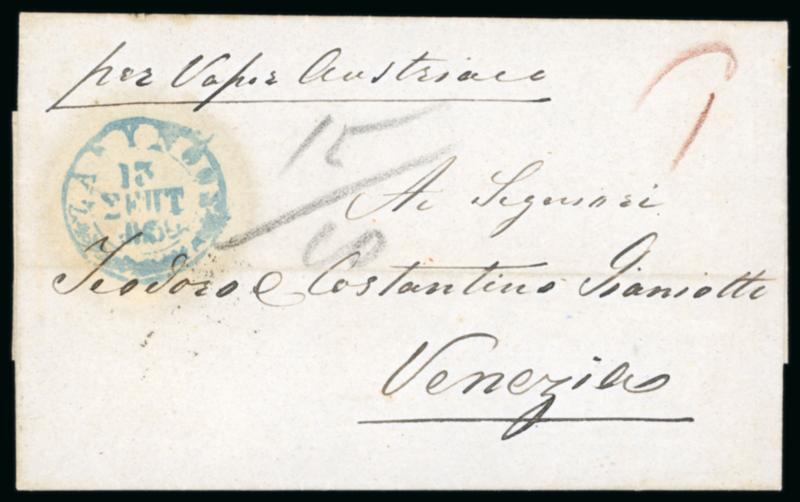 per Vapor Austriaco
13
ΣΕΠΤ
15
60
Ai Signori
Teodoro e Costantino Gianiotti
Venezia